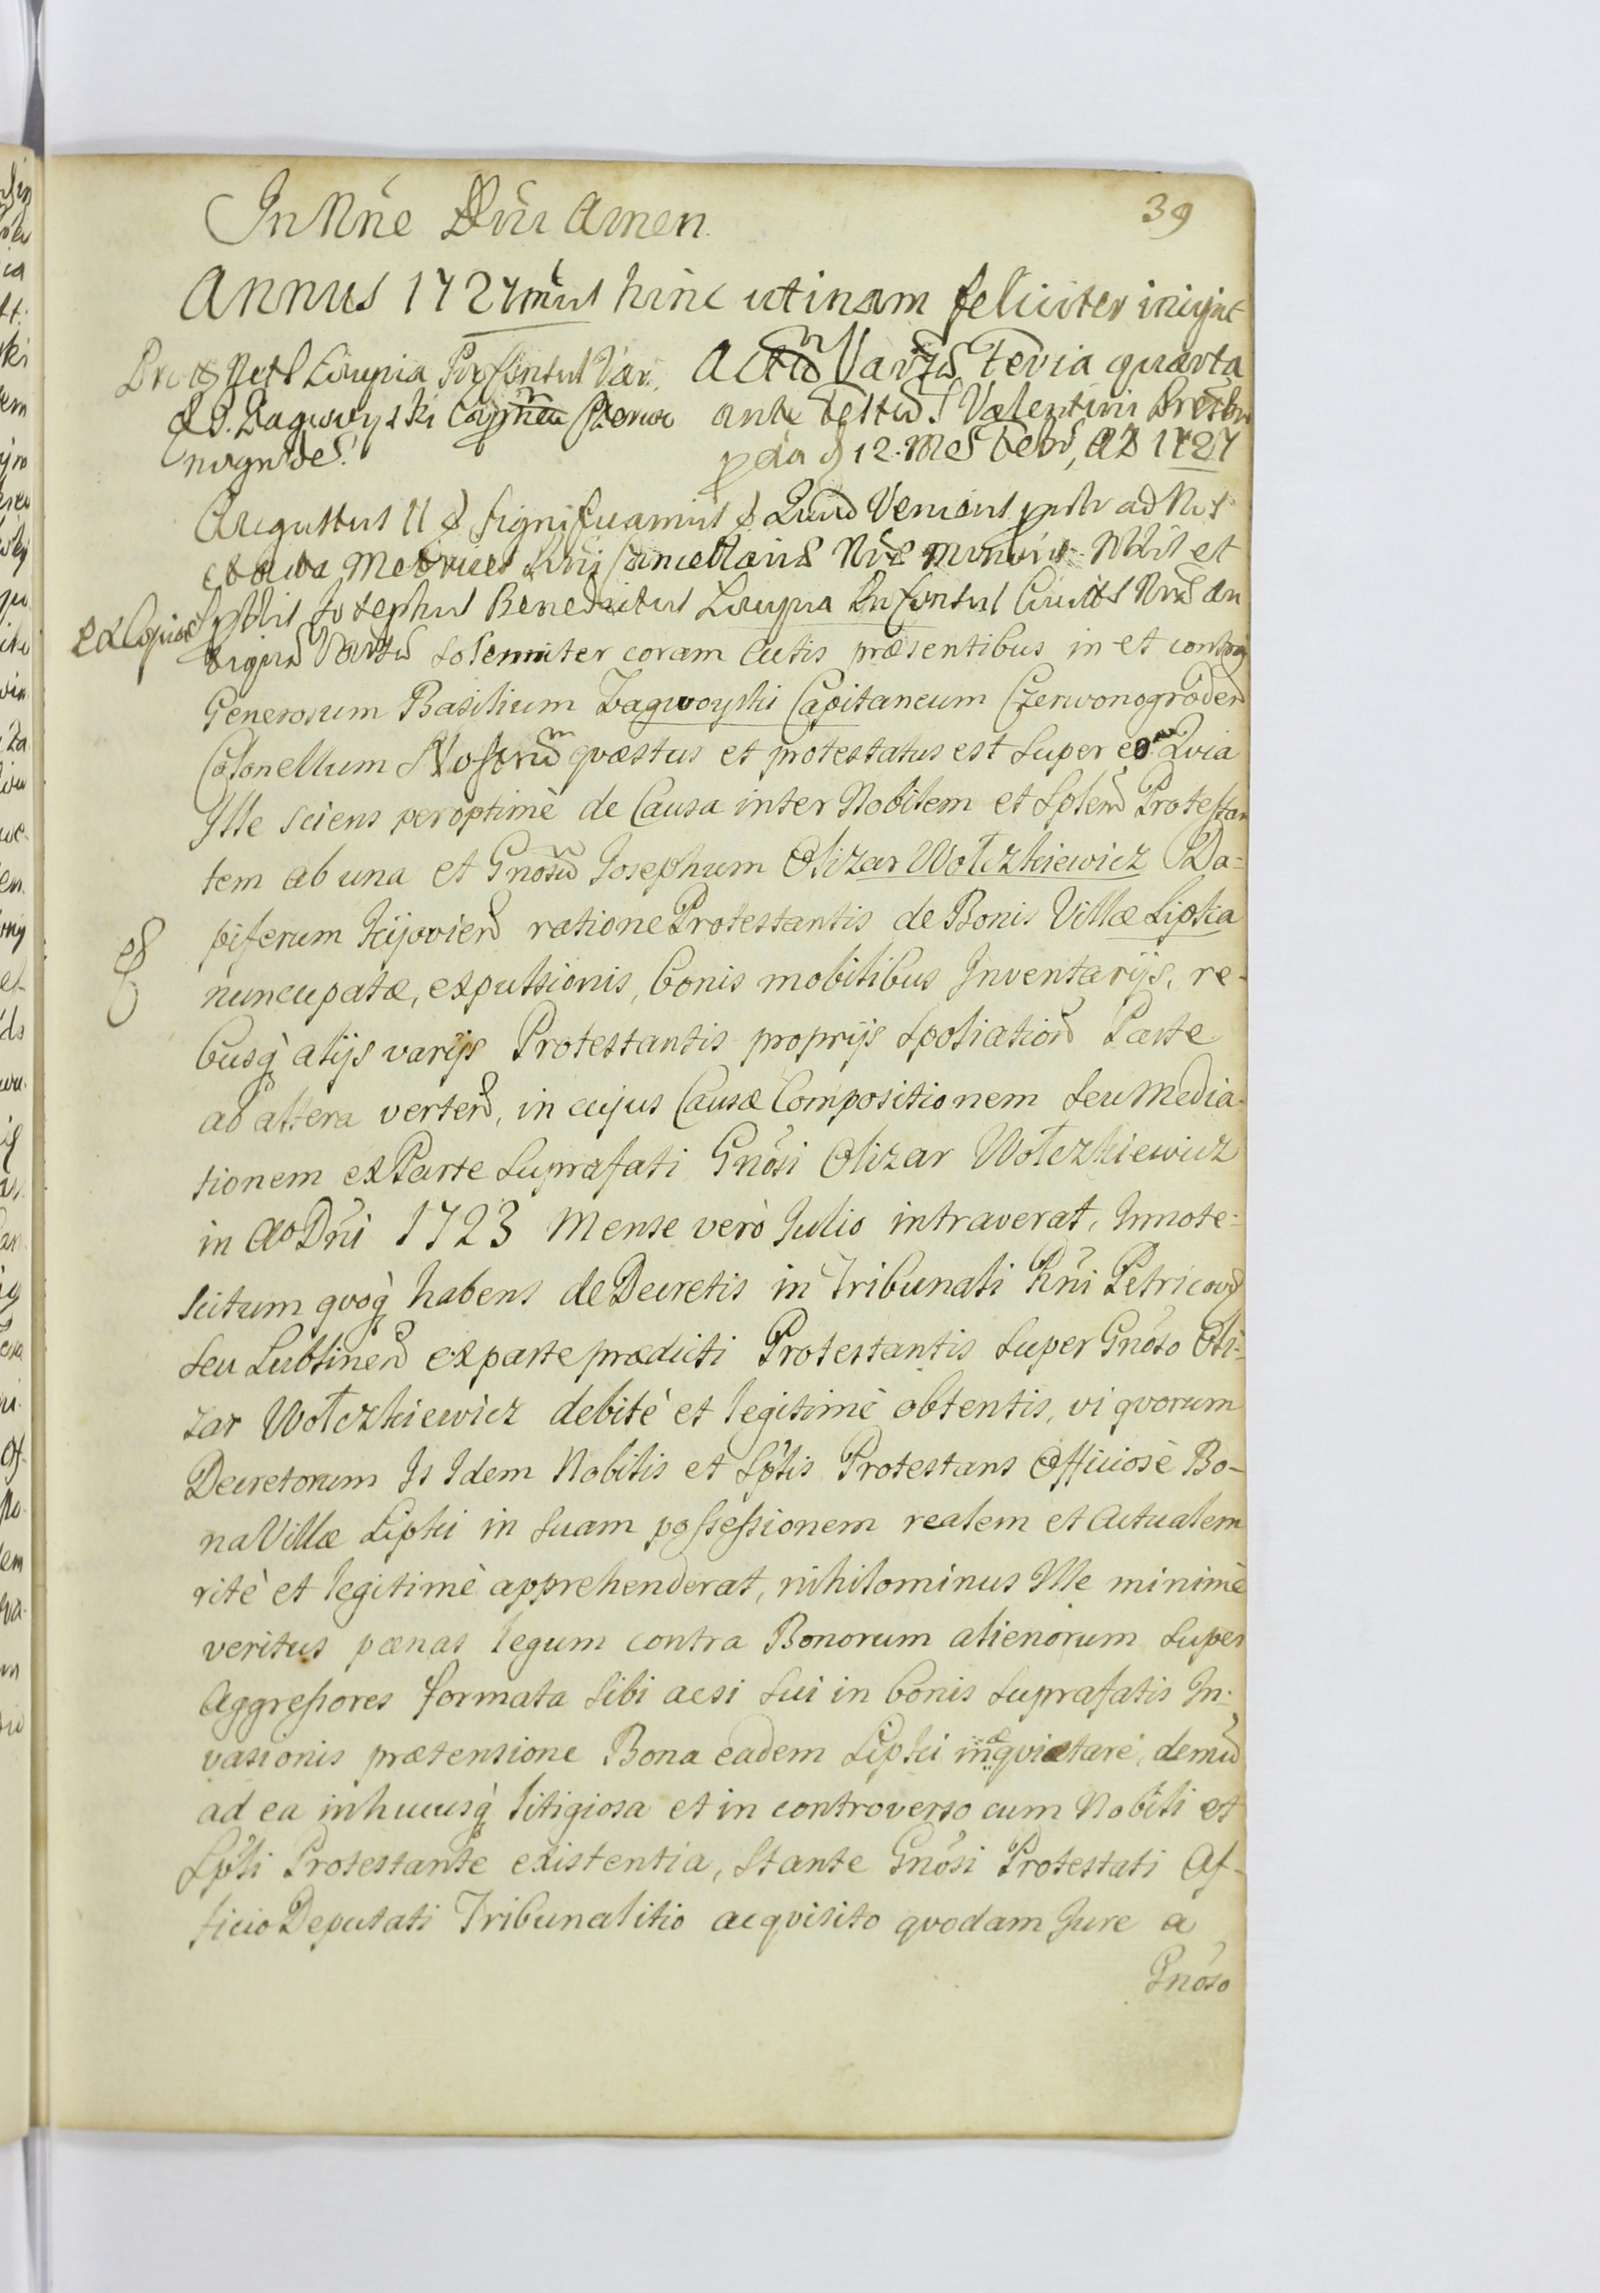 39
In Nne Dni Amen.
Annus 1727mus hinc utinam feliciter inijt
Loupia Pr Consul Var. Actu Varsa Feria quarta
Zagwoyski ante Festu S Valentini
nogrodes. 12. Mes Febr, AD 1727
Augustus II significamus Quia Veniens ad Nos
et Acta Metrices Cancellariæ Nræ Nblis et
ex Copia
Josephus Benedictus Loupia Consul
Solemniter coram Actis præsentibus in et contra
Generosum Basilium Zagwoyski Capitaneum Czerwonogroden
Colonellum Nostrum qvæstus et protestatus est Super eo Qvia
Ille sciens peroptimè de Causa inter Nobilem et Spten Protestan
tem ab una et Gnosu Josephum Olizar Wołczkiewicz Da-
piferum Kijovien ratione Protestantis de Bonis Villæ Lipka
nuncupatæ, expulsionis, bonis mobilibus Inventarijs, re-
busq alijs varijs Protestantis proprijs Spoliation Parte
ab altera verten, in cujus Causæ Compositionem Seu Media-
tionem ex Parte Suprafati Gnosi Olizar Wołczkiewicz
in Ao Dni 1723 Mense verò Julio intraverat, Innote-
scitum qvoq habens de Decretis in Tribunali Rni Petricov
seu Lublinen ex parte prædicti Protestantis Super Gnoso Oli-
zar Wołczkiewicz debitè et legitimè obtentis, vi qvorum
Decretorum Is Idem Nobilis et Sptis Protestans Officiosè Bo-
na Villæ Lipki in suam possessionem realem et Actualem
ritè et legitimè apprehenderat, nihilominus Ille minimè
veritus pænas legum contra Bonorum alienorum Super
Aggressores formata sibi acsi sui in bonis Suprafatis In-
vasionis prætensione Bona eadem Lipki inqvietare, demu
ad ea inhucusq litigiosa et in controverso cum Nobili et
Spti Protestante existentia, Stante Gnosi Protestati Of-
ficio Deputati Tribunalitio acqvisito qvodam Jure a
Gnoso